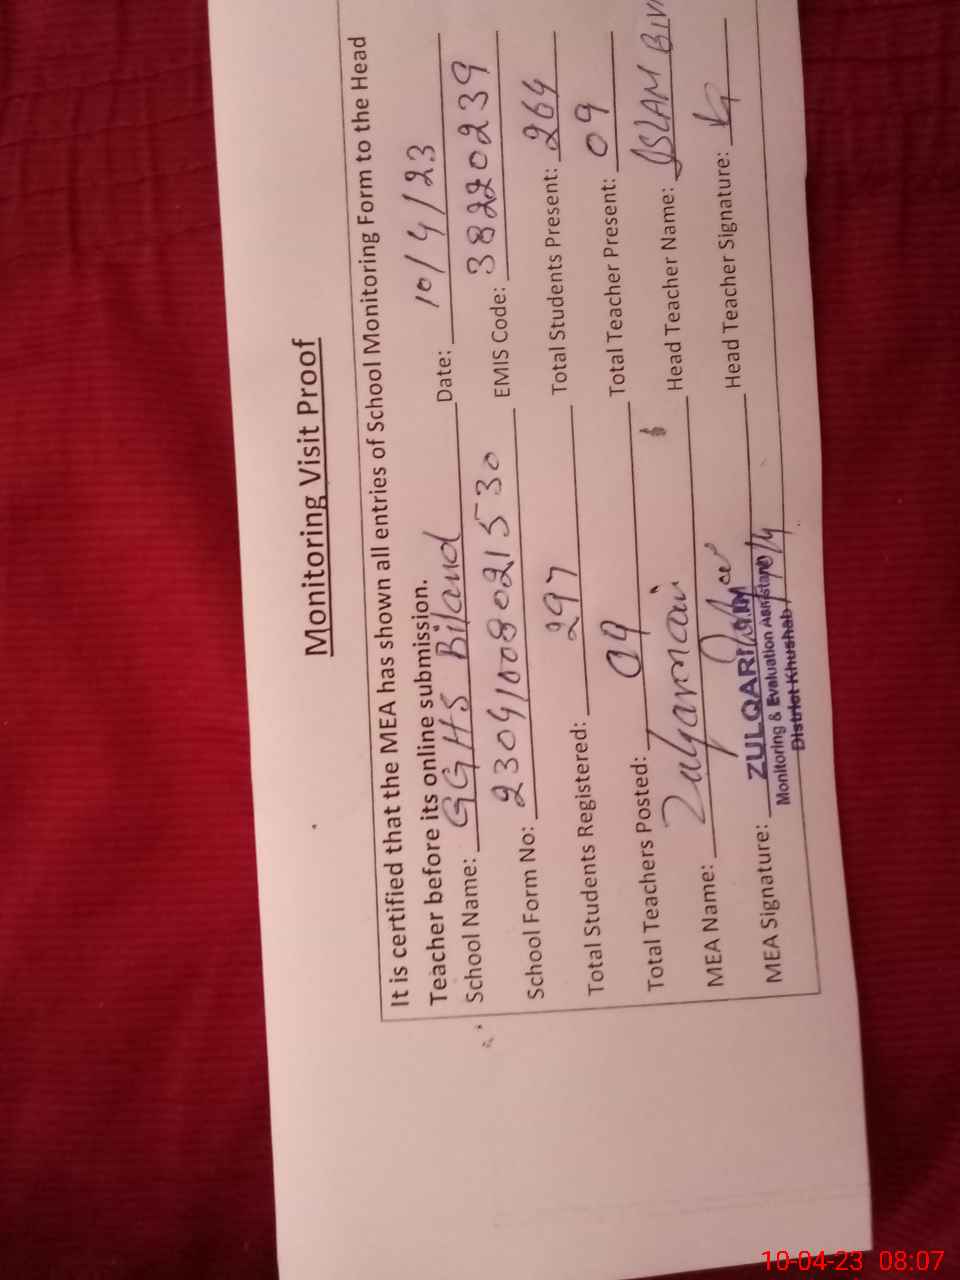 Monitoring Visit Proof
It is certified that the MEA has shown all entries of School Monitoring Form to the Head
Teacher before its online submission.
School Name: GGHS Biland Date: 10/4/23
School Form No: 23041008021530 EMIS Code: 38220239
Total Students Registered: 297 Total Students Present: 264
Total Teachers Posted: 09 Total Teacher Present: 09
MEA Name: Zulqarnain Head Teacher Name: ISLAM
MEA Signature: Head Teacher Signature:
ZULQARNAIN
Monitoring & Evaluation Assistant
District Khushab
10-04-23 08:07